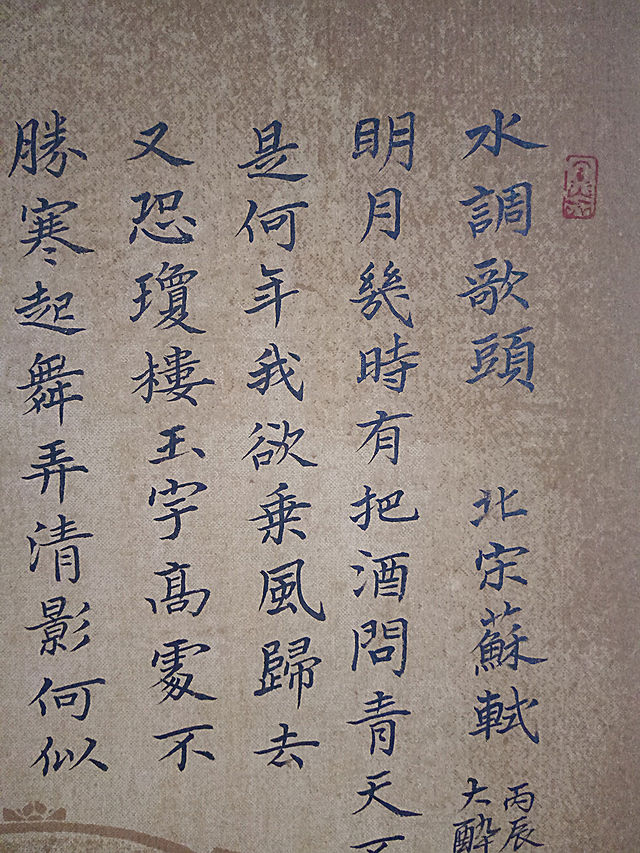 水調歌頭 北宋蘇軾 丙辰
大醉
明月幾時有把酒問青天不
是何年我欲乘風歸去
又恐瓊樓玉宇高處不
勝寒起舞弄清影何似